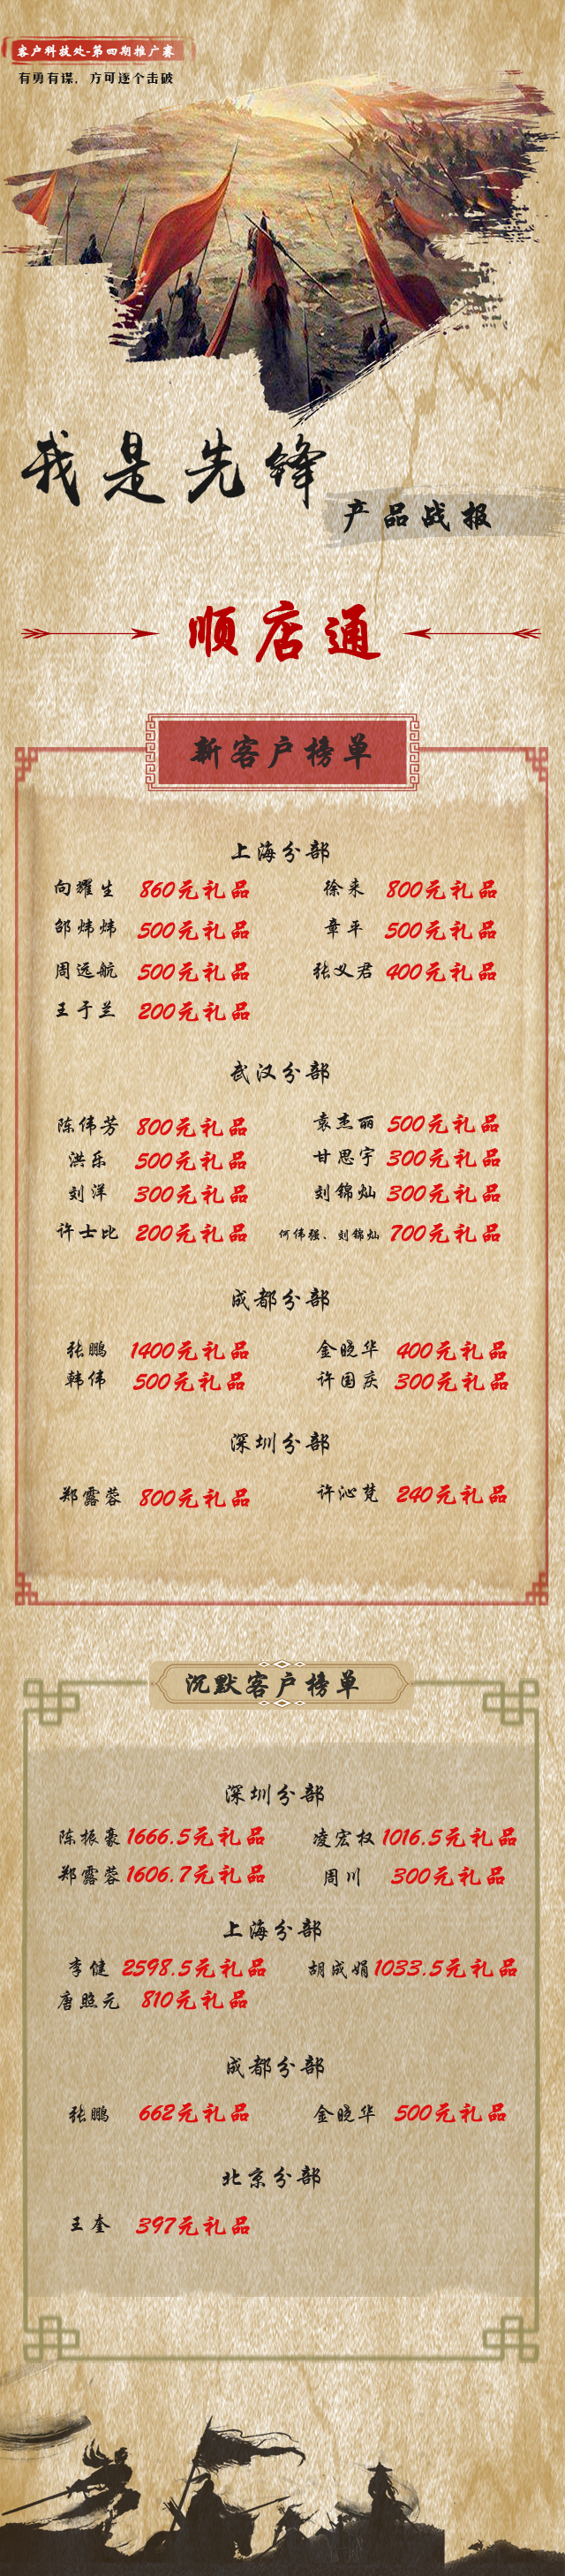 客户科技处-第四期推广赛
有勇有谋，方可逐个击破
我是先锋
产品战报
顺店通
新客户榜单
上海分部
向耀生 860元礼品 徐来 800元礼品
邹炜炜 500元礼品 章平 500元礼品
周远航 500元礼品 张义君 400元礼品
王于兰 200元礼品
武汉分部
陈伟芳 800元礼品 袁杰丽 500元礼品
洪乐 500元礼品 甘思宇 300元礼品
刘洋 300元礼品 刘锦灿 300元礼品
许士比 200元礼品 何伟强、刘锦灿 700元礼品
成都分部
张鹏 1400元礼品 金晓华 400元礼品
韩伟 500元礼品 许国庆 300元礼品
深圳分部
郑露蓉 800元礼品 许沁梵 240元礼品
沉默客户榜单
深圳分部
陈振豪 1666.5元礼品 凌宏权 1016.5元礼品
郑露蓉 1606.7元礼品 周川 300元礼品
上海分部
李健 2598.5元礼品 胡成娟 1033.5元礼品
唐照元 810元礼品
成都分部
张鹏 662元礼品 金晓华 500元礼品
北京分部
王奎 397元礼品